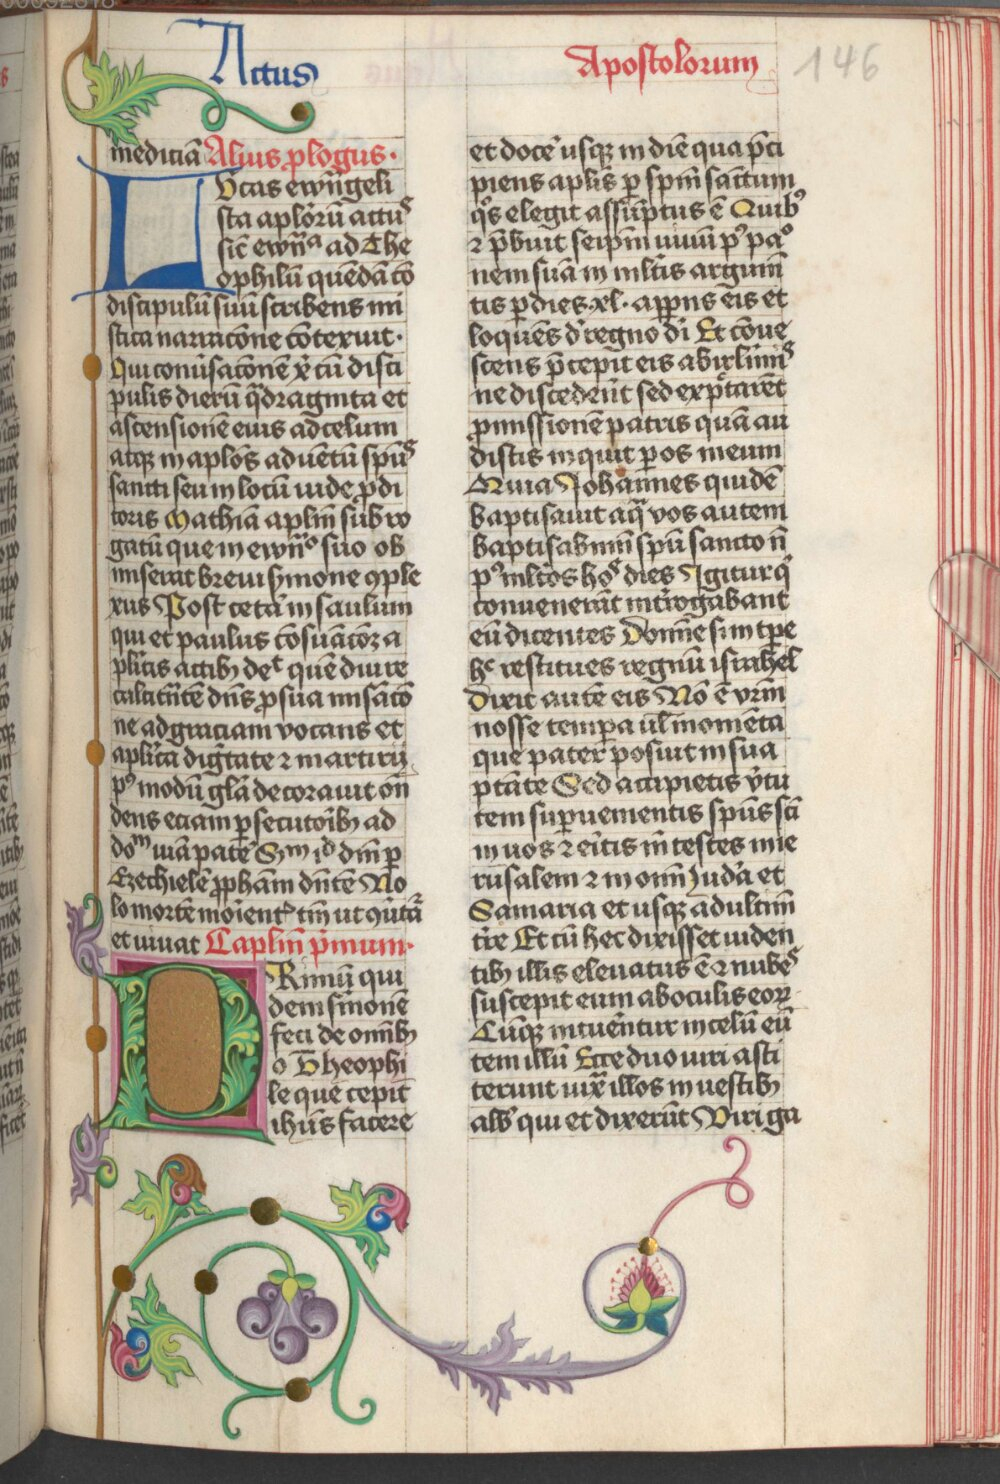 Actus
Apostolorum
146
mediciā Alius ꝓlogus·
LUcas ewāngeli
sta aplōrū actuˢ
sic̄ ewn̄ᵃ ad The
ophilū quēdā cō
discipulū suū scribens mi
stica narracōne cōtexuit·
Qui conūsacōnē xp̄i cū disci
pulis dierū q̄draginta et
ascensionē eius ad celum
atqꝫ in aplōs aduentū spūˢ
sancti seu in locū iude ꝓdi
toris Mathiā aplīm sub ro
gatū que in ewn̄ᵒ suo ob
miserat breui sꝫmone ꝯple
xus Post cetā in saulum
qui et paulus cōsuāt̄coꝝ a
pl̄icis actibꝫ deᵗ quē diu re
calcitn̄tē dn̄s ꝓ sua misācō
ne ad graciam vocans et
aplīca dignitate ⁊ martirij
pᵒ modū glā decorauit on̄
dens eciam ꝑsecutoribꝫ ad
doᵐ uiā patē Sᵐ iᵈ dn̄m ꝑ
Ezechielē ꝓpham dn̄tē No
lo mortē moientꝰ tm̄ ut ꝯūtā
et uiuat Caplīm p̄mum·
PRimū qui
dem sm̄onē
feci de omībꝫ
o Theophi
le que cepit
ihūs facere
et docē usqꝫ in diē qua p̄ci
piens aplīs ꝑ spm̄ sanctum
qᵒs elegit assūptus ē Quibꝰ
⁊ p̄buit seipm̄ uiuū pꝰ paᵒ
nem suā in mltīs argum̄
tis ꝑ dies xl· appn̄s eis et
loquēs d̄ regno dī Et cōue
scens p̄cepit eis ab irl̄imīˢ
ne discederēt sed exp̄tarēt
ꝓmissionē patris quā au
distis inquit ꝑ os meum
Quia Johannes quidē
baptisauit aq̄ vos autem
baptisabimī spū sancto n̄
pꝰ mltōs hoˢ dies Igitur q̄
conuenerāt int̄rogabant
eū dicentes Domīne si in tp̄e
hᶜ restitues regnū israhel
Dixit autē eis Nō ē vr̄m
nosse tempa ul̄ momēta
que pater posuit in sua
ptāte Sed accipietis v̄tu
tem suꝑuenientis spūs scī
in uos ⁊ eītis m̄ testes in ie
rusalem ⁊ in omī Juda et
Samaria et usqꝫ ad ultim̄
tr̄e Et cū hec dixisset uiden
tibꝫ illis eleuatus ē ⁊ nubēˢ
suscepit eum ab oculis eoꝝ
Cūqꝫ intuēntur in celū eū
tem illū Ecce duo uiri asti
terunt iuxᵃ illos in vestibꝫ
albˢ qui et dixerūt Viri ga